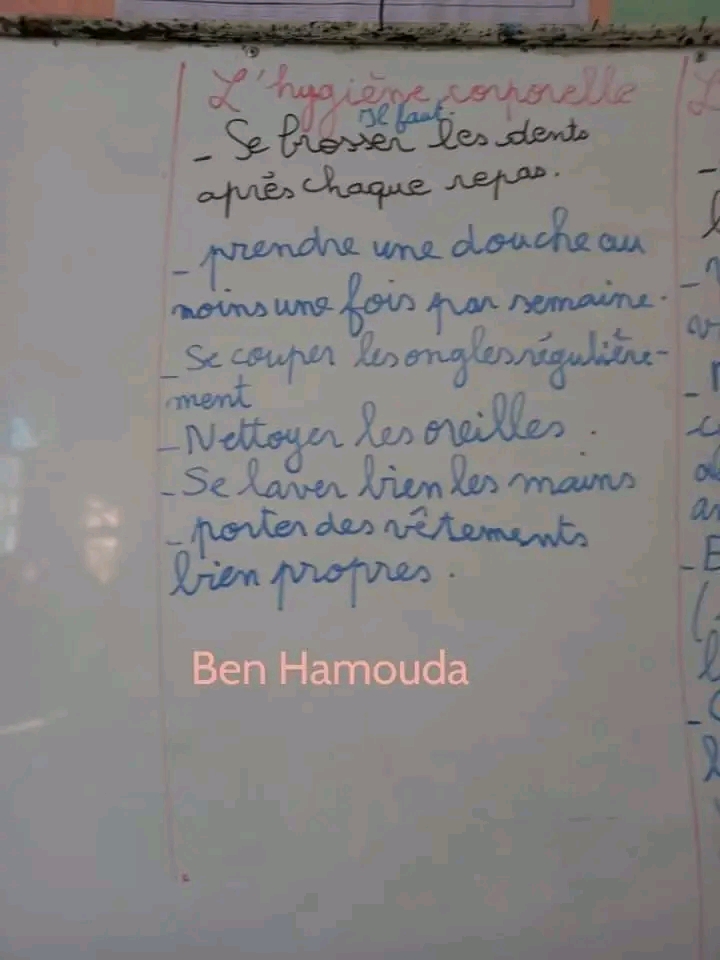 L'hygiène corporelle
Il faut
- Se brosser les dents
après chaque repas.
- prendre une douche au
moins une fois par semaine.
- Se couper les ongles régulière-
ment
- Nettoyer les oreilles.
- Se laver bien les mains
- porter des vêtements
bien propres.
Ben Hamouda